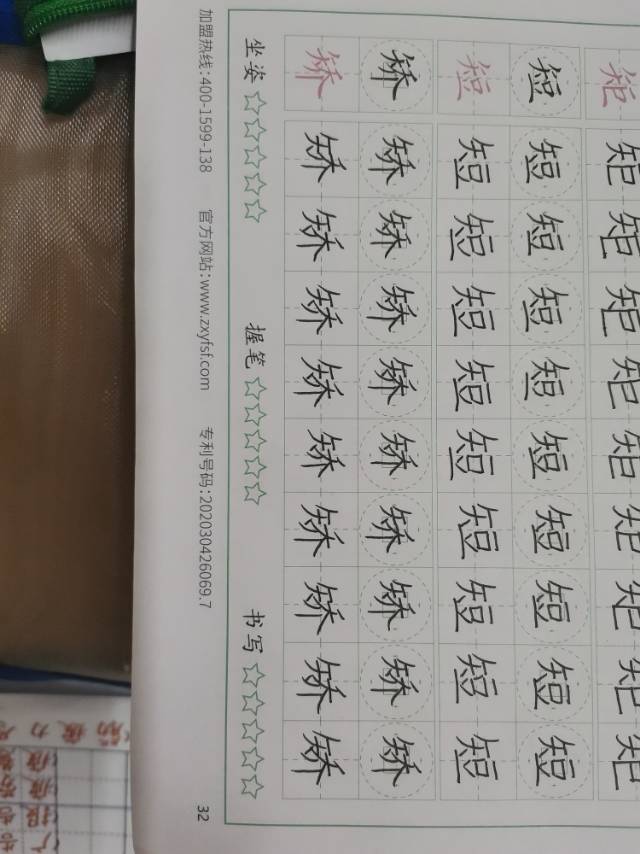 矩矩矩矩矩矩矩矩矩矩
短短短短短短短短短短
短短短短短短短短短短
矫矫矫矫矫矫矫矫矫矫
矫矫矫矫矫矫矫矫矫矫
坐姿 ☆☆☆☆☆ 握笔 ☆☆☆☆☆ 书写 ☆☆☆☆☆
加盟热线:400-1599-138 官方网站:www.zxyfsf.com 专利号码:202030426069.7 32